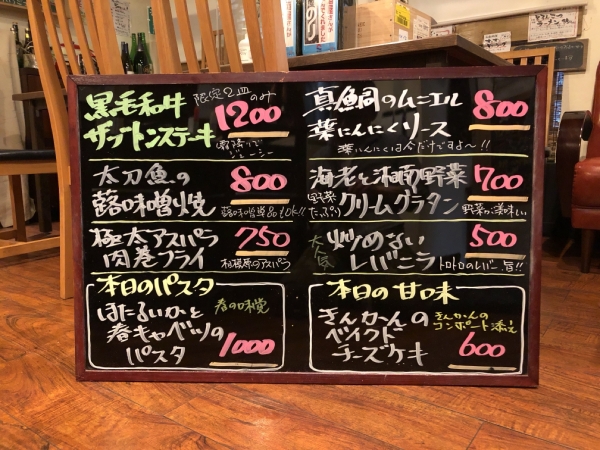 黒毛和牛
限定2皿のみ
ザブトンステーキ
1200
霜降りで
ジューシー
太刀魚の
蕗味噌焼
800
蕗味噌単品もok!!
極太アスパラ
肉巻フライ
750
相模原のアスパラ
本日のパスタ
ほたるいかと
春キャベツの
パスタ
春の味覚
1000
真鯛のムニエル
葉にんにくソース
800
葉にんにくは今だけですよ〜!!
海老と湘南野菜
クリームグラタン
700
野菜
たっぷり
野菜が美味しい
大人気
炒めない
レバニラ
500
トロトロのレバー旨!!
本日の甘味
きんかんの
ベイクド
チーズケーキ
きんかんの
コンポート添え
600